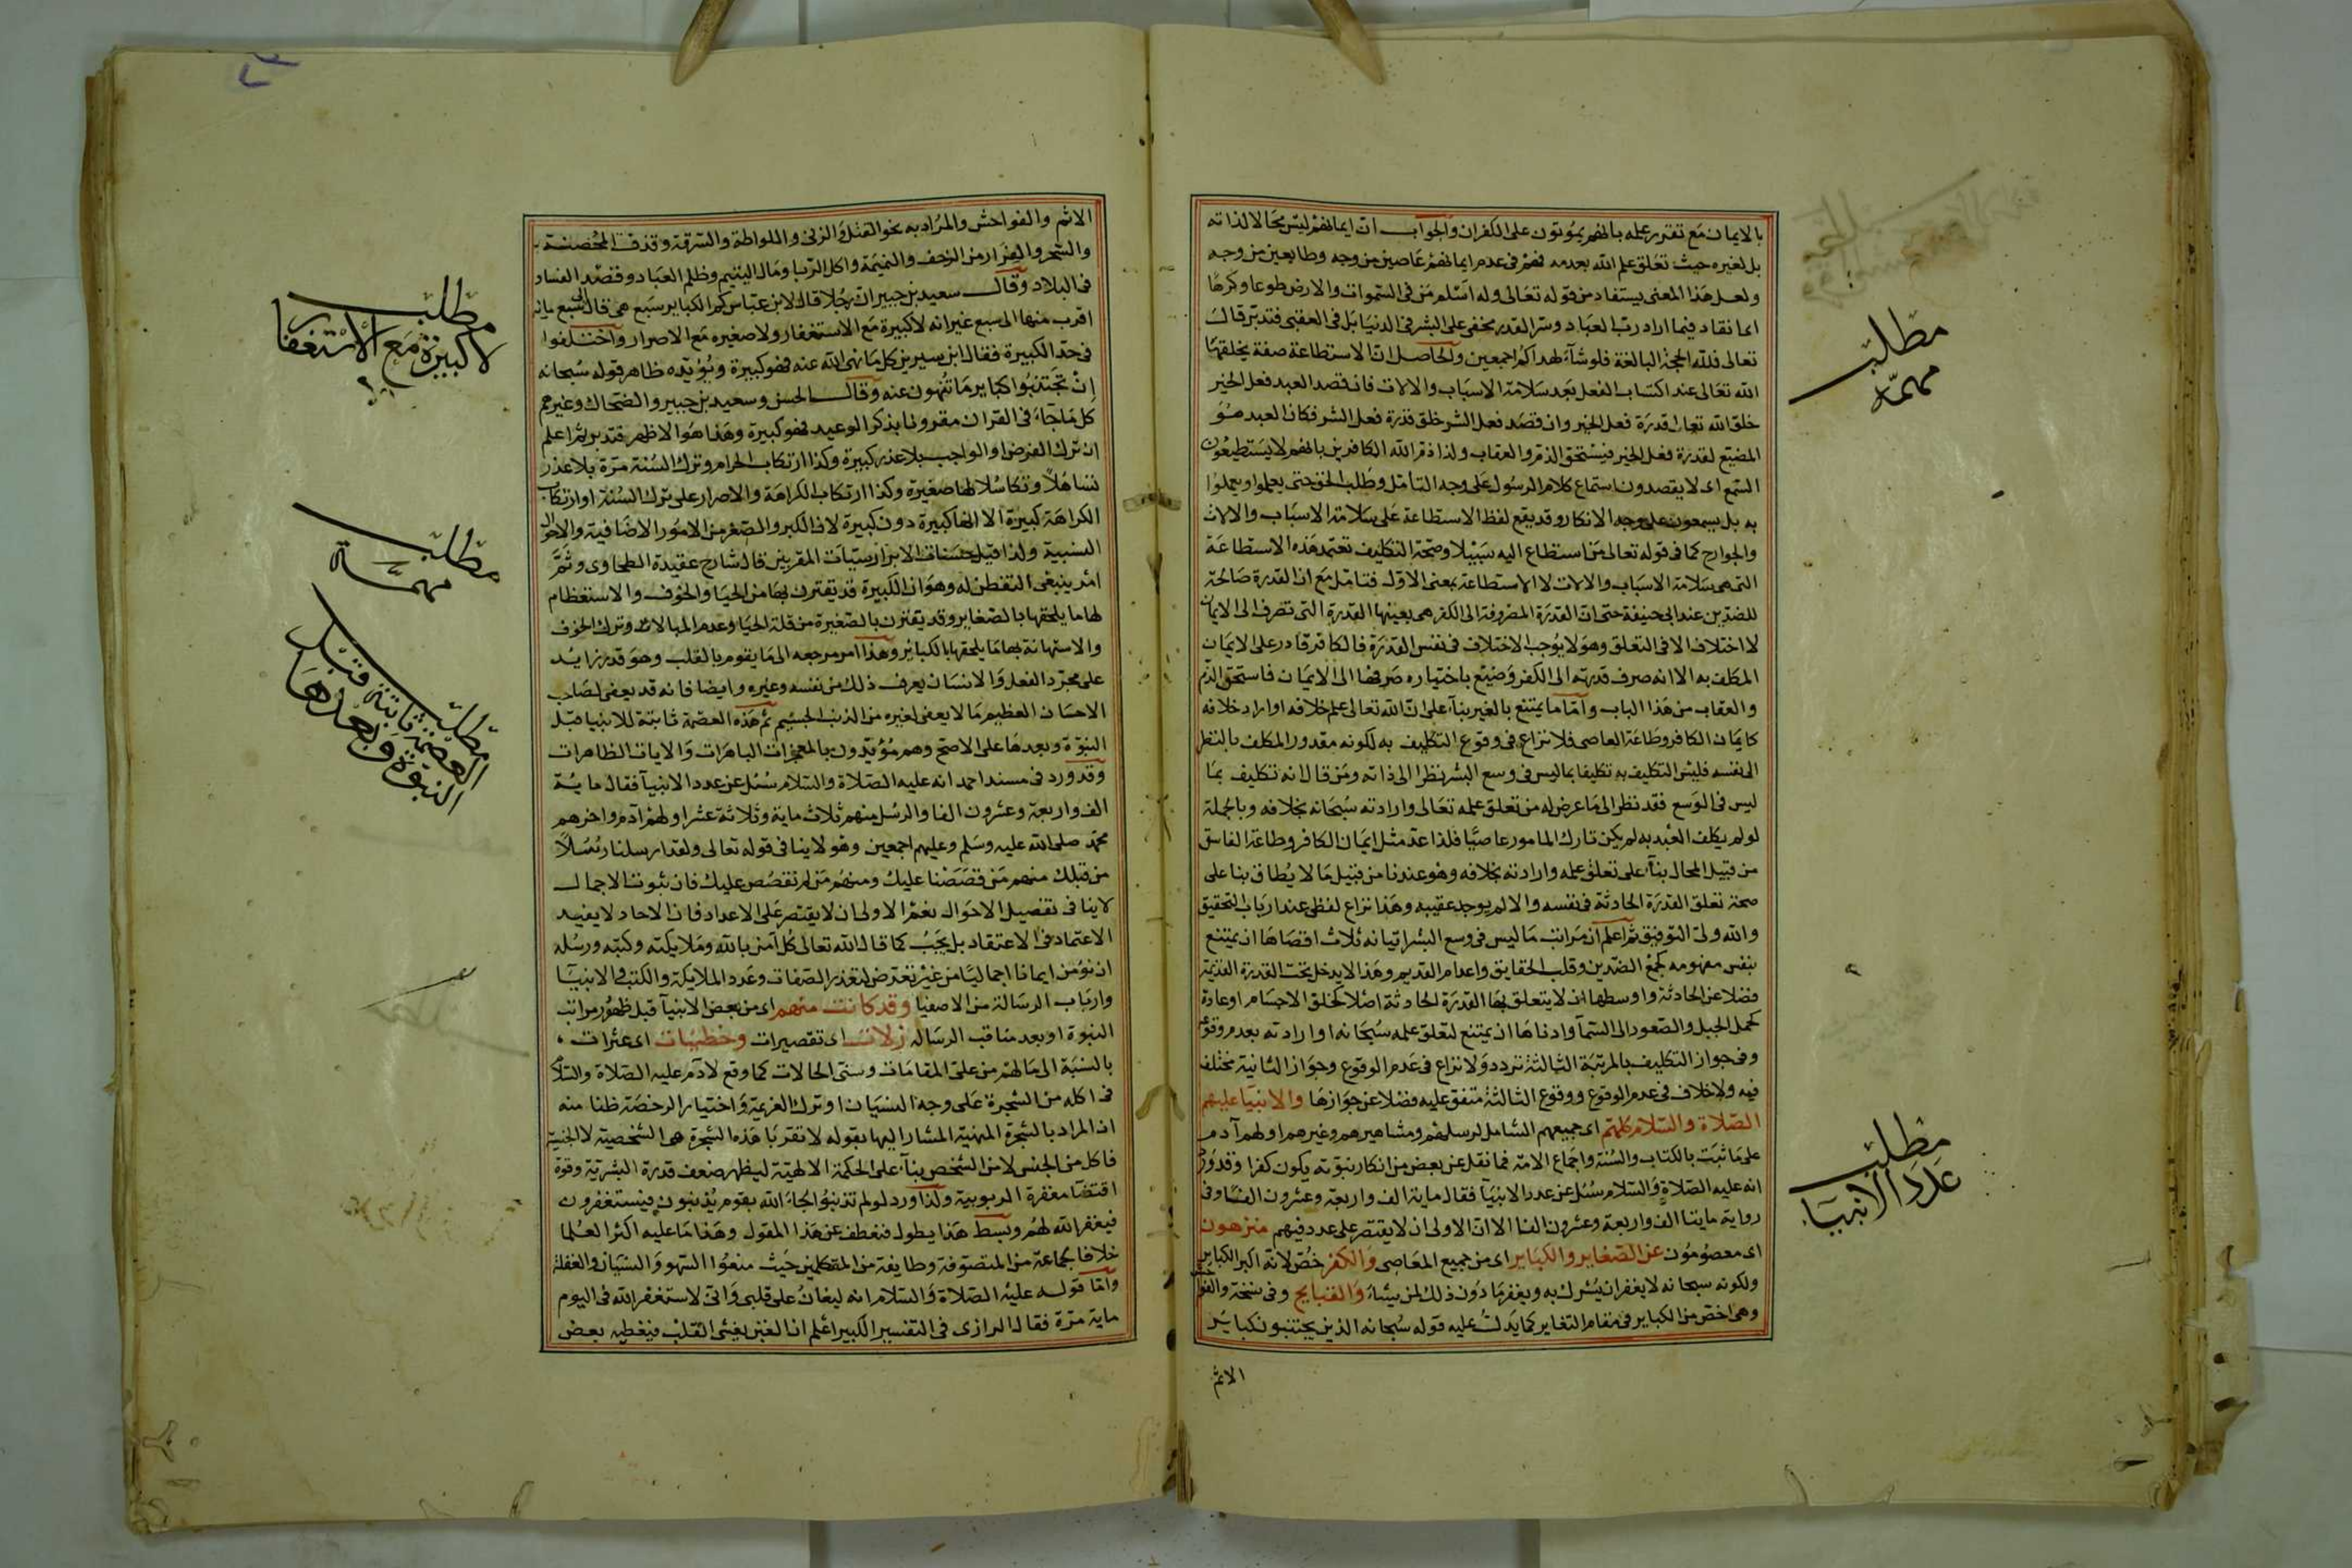 بالايمان مع تقرر علمه بانهم يموتون على الكفران والجواب ان ايمانهم ليس محالا لذاته
بل لغيره حيث تعلق علم الله بعدمه فهم فى عدم ايمانهم عاصين من وجه وطايعين من وجه
ولعل هذا المعنى يستفاد من قوله تعالى وله اسلم من فى السموات والارض طوعا وكرها
اى انقاد فيما اراد رب العباد وسر القدر مخفى على البشر فى الدنيا بل فى العقبى فتدبر قال
تعالى فلله الحجة البالغة فلو شآء لهداكم اجمعين والحاصل ان الاستطاعة صفة يخلقها
الله تعالى عند اكتساب الفعل بعد سلامة الاسباب والالات فان قصد العبد فعل الخير
خلق الله تعالى قدرة فعل الخير وان قصد فعل الشر خلق قدرة فعل الشر فكان العبد هو
المضيع لقدرة فعل الخير فيستحق الذم والعقاب ولذا ذم الله الكافرين بانهم لا يستطيعون
السمع اى لا يقصدون استماع كلام الرسول على وجه التامل وطلب الحق حتى يعلموا ويعملوا
به بل يسمعون على وجه الانكار وقد يقع لفظ الاستطاعة على سلامة الاسباب والالات
والجوارح كما فى قوله تعالى من استطاع اليه سبيلا وصحة التكليف تعتمد هذه الاستطاعة
التى هى سلامة الاسباب والالات لا الاستطاعة بمعنى الاول فتامل مع ان القدرة صالحة
للضدين عند ابى حنيفة حتى ان القدرة المصروفة الى الكفر هى بعينها القدرة التى تصرف الى الايمان
لا اختلاف الا فى التعلق وهو لا يوجب الاختلاف فى نفس القدرة فالكافر قادر على الايمان
المكلف به الا انه صرف قدرته الى الكفر وضيع باختياره صرفها الى الايمان فاستحق الذم
والعقاب من هذا الباب واما ما يمتنع بالغير بنآء على ان الله تعالى علم خلافه او اراد خلافه
كايمان الكافر وطاعة العاصى فلا نزاع فى وقوع التكليف به لكونه مقدور المكلف بالنظر
الى نفسه فليس التكليف به تكليفا بما ليس فى وسع البشر نظرا الى ذاته ومن قال انه تكليف بما
ليس فى الوسع فقد نظر الى ما عرض له من تعلق علمه تعالى وارادته سبحانه بخلافه وبالجملة
لو لم يكلف العبد به لم يكن تارك المامور عاصيا فلذا عد مثل ايمان الكافر وطاعة الفاسق
من قبيل المحال بنآء على تعلق علمه وارادته بخلافه وهو عندنا من قبيل ما لا يطاق بنا على
صحة تعلق القدرة الحادثة فى نفسه والا لم يوجد عقيبه وهذا نزاع لفظى عند ارباب التحقيق
والله ولى التوفيق ثم اعلم ان مراتب ما ليس فى وسع البشر اتيانه ثلاث اقصاها ان يمتنع
بنفس مفهومه كجمع الضدين وقلب الحقايق واعدام القديم وهذا لا يدخل تحت القدرة القديمة
فضلا عن الحادثة واوسطها ان لا يتعلق بها القدرة الحادثة اصلا كخلق الاجسام او عادة
كحمل الجبل والصعود الى السمآ وادناها ان يمتنع لتعلق علمه سبحانه او ارادته بعدم وقوعه
وفى جواز التكليف بالمرتبة الثالثة تردد ولا نزاع فى عدم الوقوع وجواز الثانية مختلف
فيه ولا خلاف فى عدم الوقوع ووقوع الثالثة متفق عليه فضلا عن جوازها والانبيا عليهم
الصلاة والسلام كلهم اى جميعهم الشامل لرسلهم ومشاهيرهم وغيرهم اولهم آدم
على ما ثبت بالكتاب والسنة واجماع الامة فما نقل عن بعض من انكار نبوته يكون كفرا وقد ورد
انه عليه الصلاة والسلام سئل عن عدد الانبيآ فقال ماية الف واربعة وعشرون الفا وفى
رواية مايتا الف واربعة وعشرون الفا الا ان الاولى ان لا يقتصر على عدد فيهم منزهون
اى معصومون عن الصغاير والكباير اى من جميع المعاصى والكفر خص لانه اكبر الكباير
ولكونه سبحانه لا يغفر ان يشرك به ويغفر ما دون ذلك لمن يشاء والقبايح وفى نسخة والفواحش
وهى اخص من الكباير فى مقام التغاير كما يدل عليه قوله سبحانه الذين يجتنبون كباير
الاثم
مطلب
مهمه
مطلب
عدد الانبيا
الاثم والفواحش والمراد به نحو القتل والزنى واللواطة والسرقة وقذف المحصنة
والسحر والفرار من الزحف والنميمة واكل الربا ومال اليتيم وظلم العباد وقصد الفساد
فى البلاد وقال سعيد بن جبير ان رجلا قال لابن عباس كم الكباير سبع هى قال الى سبع ماية
اقرب منها الى سبع غير انه لا كبيرة مع الاستغفار ولا صغيره مع الاصرار واختلفوا
فى حد الكبيرة فقال ابن سيرين كل ما نهى الله عنه فهو كبيرة ويؤيده ظاهر قوله سبحانه
ان تجتنبوا كباير ما تنهون عنه وقال الحسن وسعيد بن جبير والضحاك وغيرهم
كل ما جآء فى القران مقرونا بذكر الوعيد فهو كبيرة وهذا هو الاظهر فتدبر ثم اعلم
ان ترك الفرض او الواجب بلا عذر كبيرة وكذا ارتكاب الحرام وترك السنة مرة بلا عذر
تساهلا وتكاسلا لها صغيرة وكذا ارتكاب الكراهة والاصرار على ترك السنة او ارتكاب
الكراهة كبيرة الا انها كبيرة دون كبيرة لان الكبر والصغر من الامور الاضافية والاحوال
النسبية ولذا قيل حسنات الابرار سيئات المقربين قال شارح عقيدة الطحاوى وثم
امر ينبغى التفطن له وهو ان الكبيرة قد يقترن بها من الحيا والخوف والاستعظام
لها ما يلحقها بالصغاير وقد يقترن بالصغيرة من قلة الحيا وعدم المبالاة وترك الخوف
والاستهانة بها ما يلحقها بالكبائر وهذا امر مرجعه الى ما يقوم بالقلب وهو قدر زايد
على مجرد الفعل والانسان يعرف ذلك من نفسه وغيره وايضا فانه قد يعفى لصاحب
الاحسان العظيم ما لا يعفى لغيره من الذنب الجسيم ثم هذه العصمة ثابتة للانبيا قبل
النبوة وبعدها على الاصح وهم مؤيدون بالمعجزات الباهرات والايات الظاهرات
وقد ورد فى مسند احمد انه عليه الصلاة والسلام سئل عن عدد الانبيآ فقال ماية
الف واربعة وعشرون الفا والرسل منهم ثلاث ماية وثلاثة عشر اولهم آدم واخرهم
محمد صلى الله عليه وسلم وعليهم اجمعين وهو لا ينافى قوله تعالى ولقد ارسلنا رسلا
من قبلك منهم من قصصنا عليك ومنهم من لم نقصص عليك فان ثبوت الاجمال
لا ينافى تفصيل الاحوال نعم الاولى ان لا يقتصر على الاعداد فان الاحاد لا يفيد
الاعتماد فى الاعتقاد بل يجب كما قال الله تعالى كل آمن بالله وملايكته وكتبه ورسله
ان نؤمن ايمانا اجماليا من غير تعرض لتعدد الصفات وعدد الملايكة والكتب والانبيآ
وارباب الرسالة من الاصفيا وقد كانت منهم اى من بعض الانبيآ قبل ظهور مراتب
النبوة او بعد مناقب الرساله زلات اى تقصيرات وخطيئات اى عثرات
بالنسبة الى ما لهم من على المقامات وسنى الحالات كما وقع لآدم عليه الصلاة والسلام
فى اكله من الشجرة على وجه النسيان او ترك العزيمة واختيار الرخصة ظنا منه
ان المراد بالشجرة المنهية المشار اليها بقوله لا تقربا هذه الشجرة هى الشخصية لا الجنسية
فاكل من الجنس لا من الشخص بنآء على الحكمة الالهية ليظهر ضعف قدرة البشرية وقوة
اقتضا مغفرة الربوبية ولذا ورد لو لم تذنبوا لجاء الله بقوم يذنبون فيستغفرون
فيغفر الله لهم وبسط هذا يطول فنعطف عن هذا المقول وهذا ما عليه اكثر العلما
خلافا لجماعة من المتصوفة وطايفة من المتكلمين حيث منعوا السهو والنسيان والغفلة
واما قوله عليه الصلاة والسلام انه ليغان على قلبى وانى لاستغفر الله فى اليوم
ماية مرة فقال الرازى فى التفسير الكبير اعلم ان الغين يغشى القلب فيغطيه بعض
مطلب
لا كبيرة مع الاستغفار
مطلب
مهمة
مطلب
العصمة ثابتة قبل
النبوة وبعدها